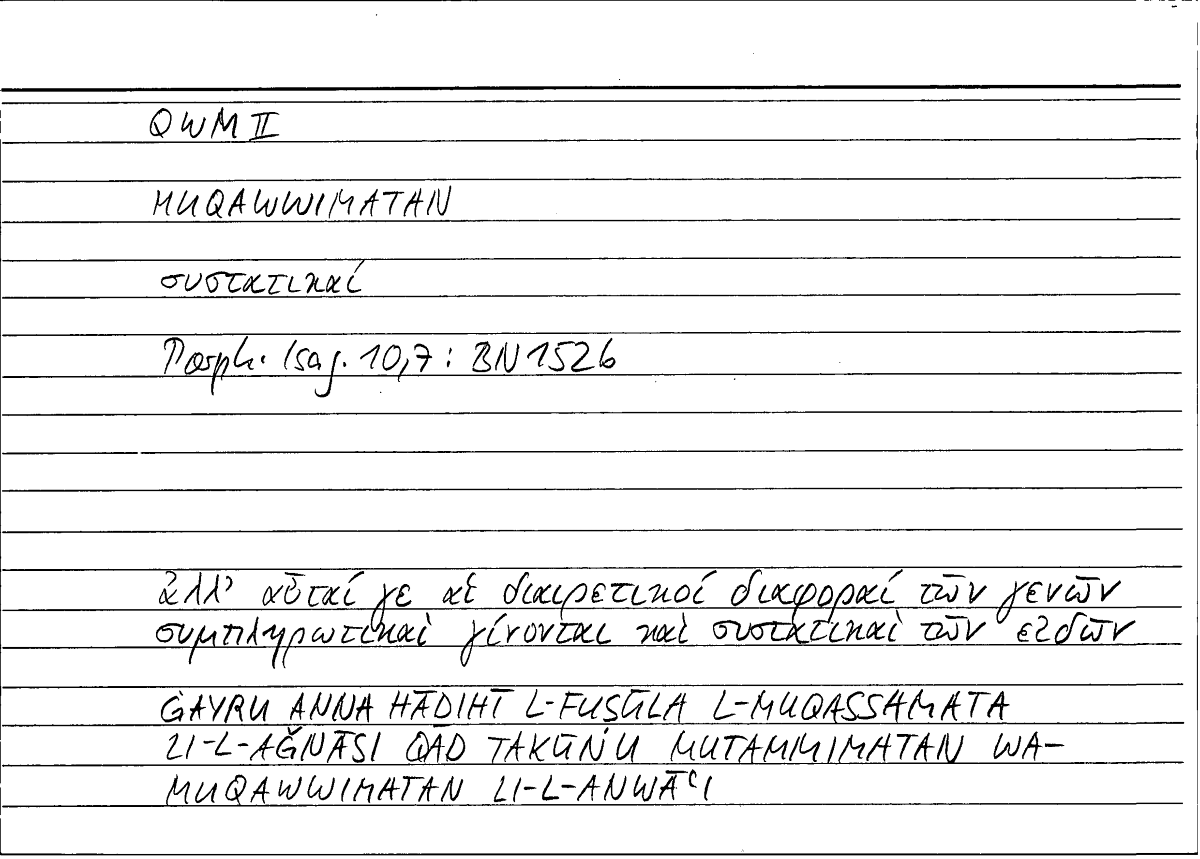 QWM II
MUQAWWIMATAN
συστατικαί
Porph. Isag. 10,7 : BN 152b
ἀλλ' αὗταί γε αἱ διαιρετικοί διαφοραί τῶν γενῶν
συμπληρωτικαὶ γίνονται καὶ συστατικαὶ τῶν εἰδῶν
ĠAYRU ANNA HĀDIHĪ L-FUSŪLA L-MUQASSAMATA
LI-L-AĞNĀSI QAD TAKŪNU MUTAMMIMATAN WA-
MUQAWWIMATAN LI-L-ANWĀʿI